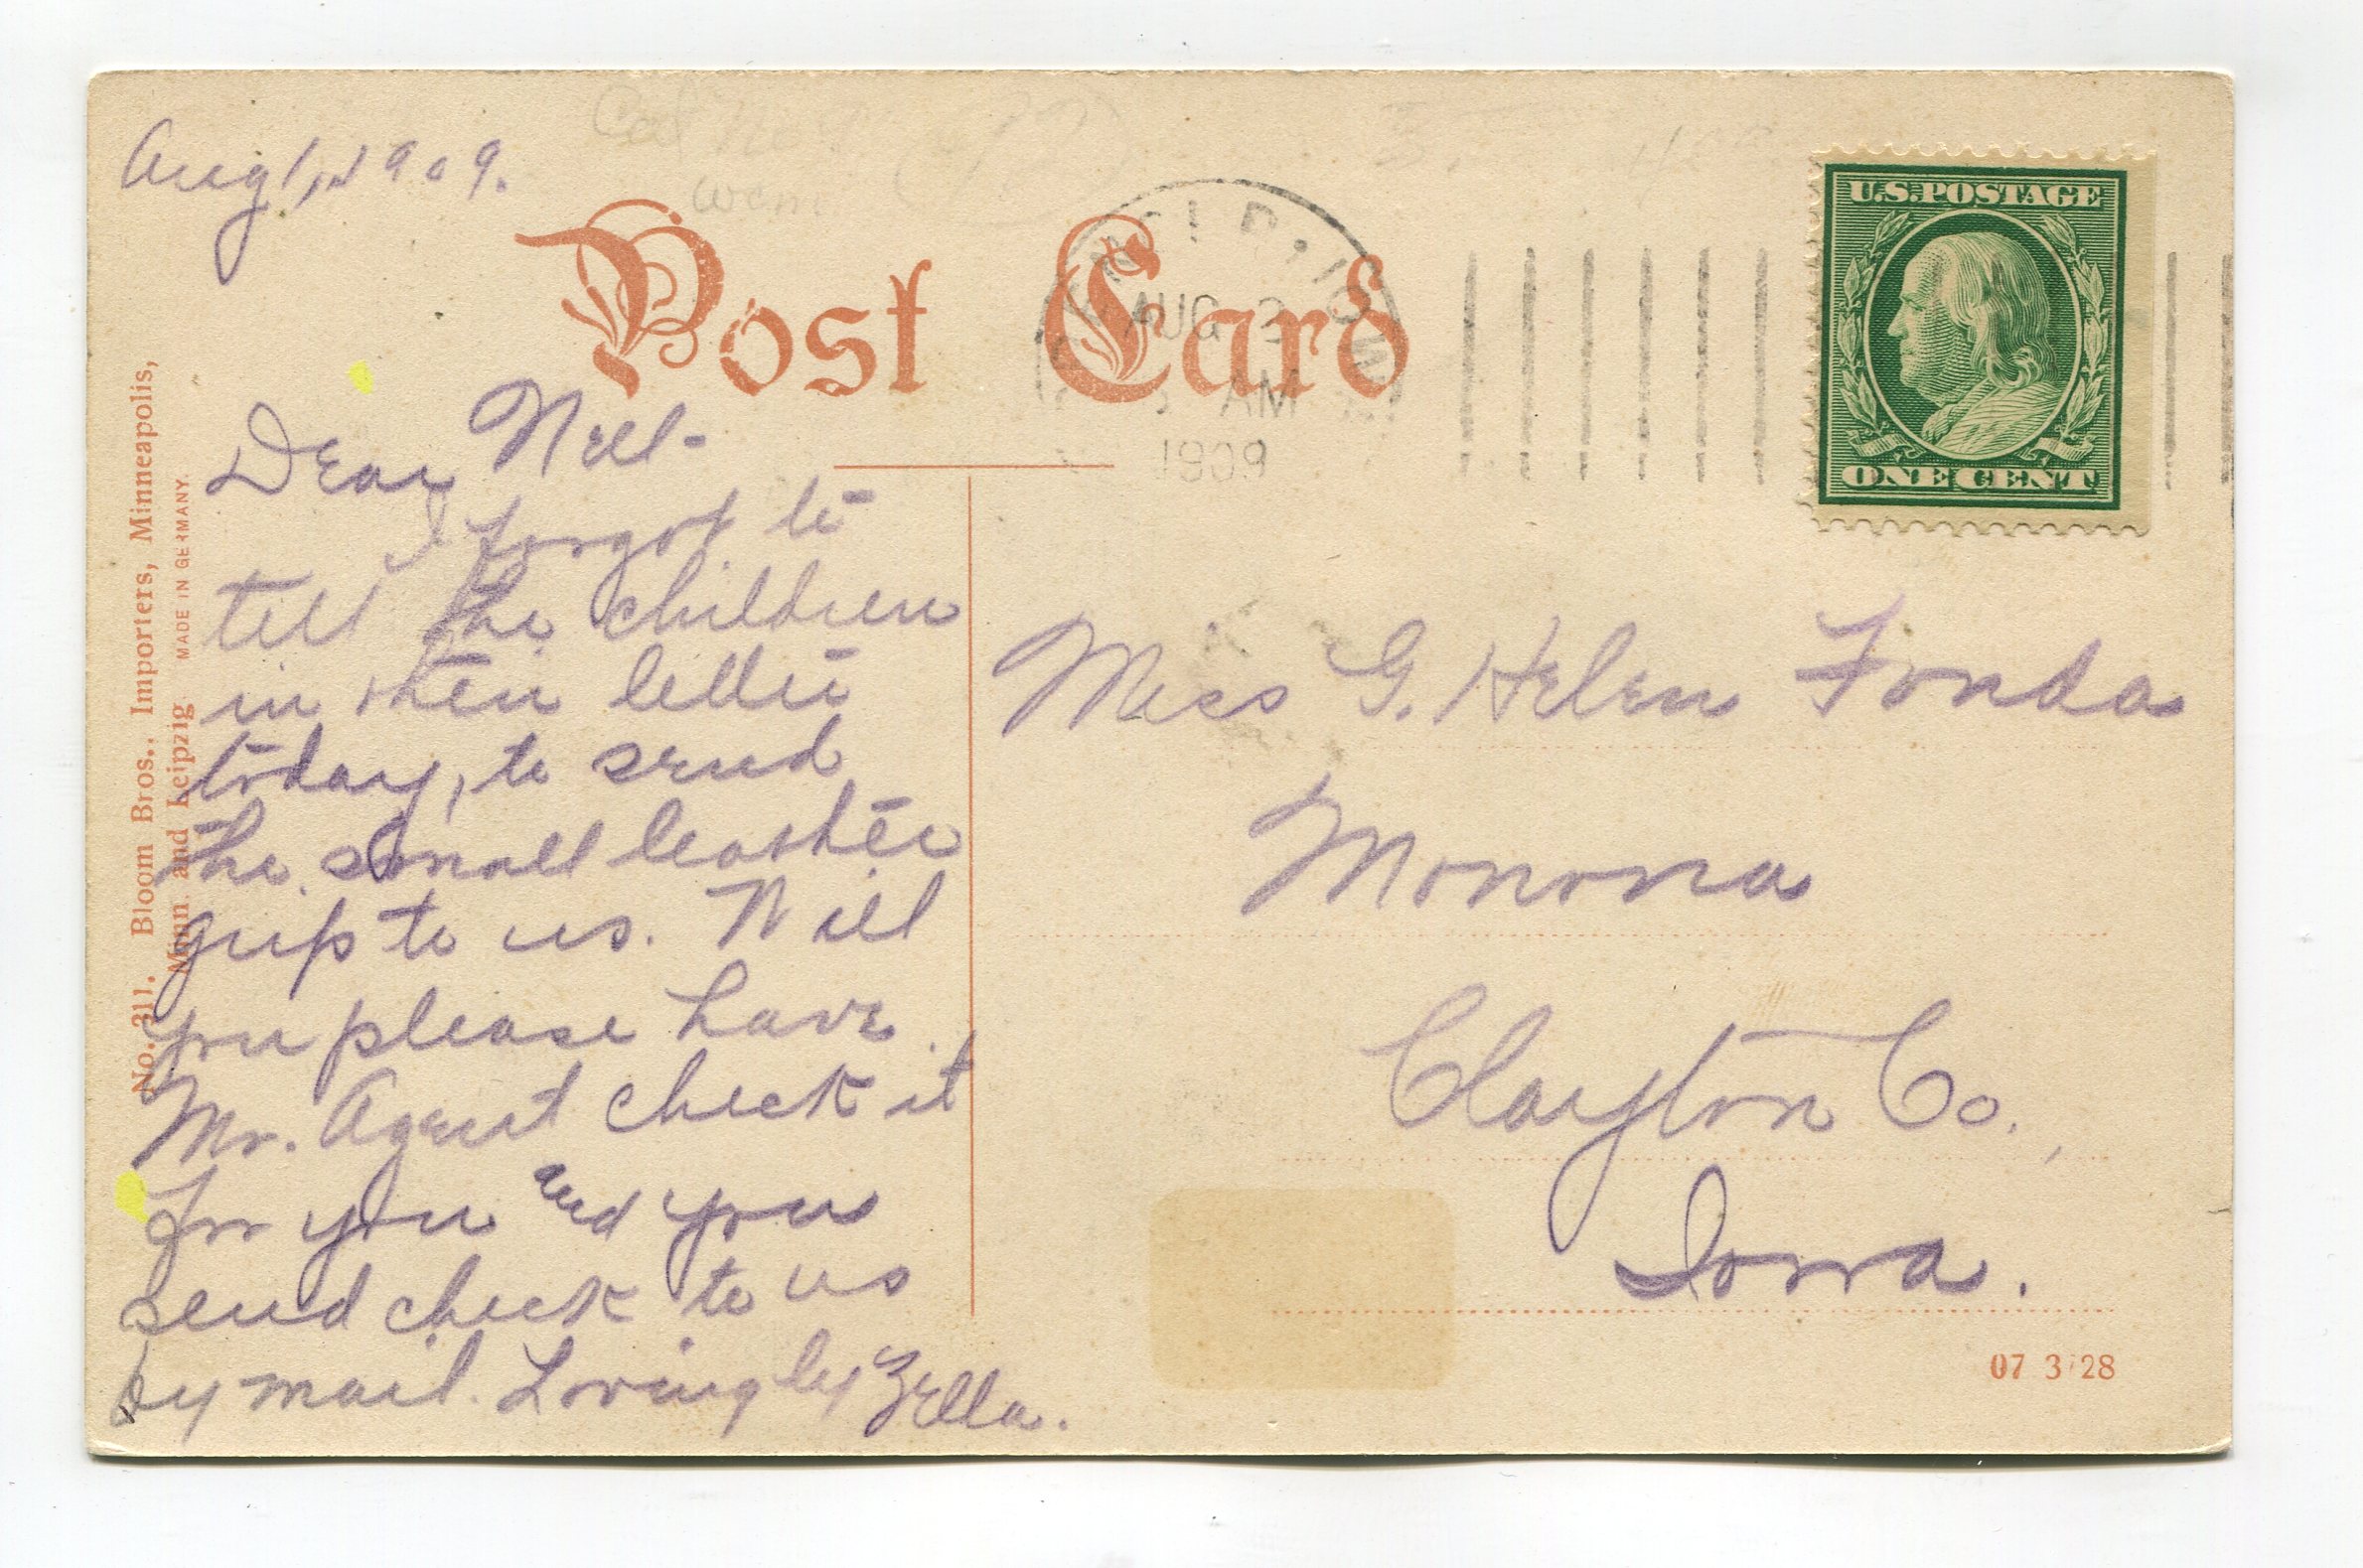 Aug 1, 1909.
Post Card
U.S. POSTAGE
ONE CENT
AUG 2
AM
1909
Dear Nell-
I forgot to
tell the children
in their letter
today, to send
the small leather
grip to us. Will
you please have
Mr. Agent check it
for you and you
send check to us
by mail. Lovingly Zella.
Miss G. Helen Fonda
Monona
Clayton Co.,
Iowa.
No. 311. Bloom Bros., Importers, Minneapolis,
Minn. and Leipzig. MADE IN GERMANY.
07 3 28